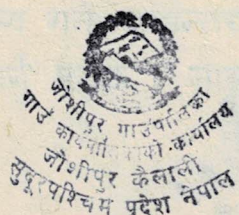 जोशीपुर गाउँपालिका
गाउँ कार्यपालिकाको कार्यालय
जोशीपुर कैलाली
सुदूरपश्चिम प्रदेश नेपाल